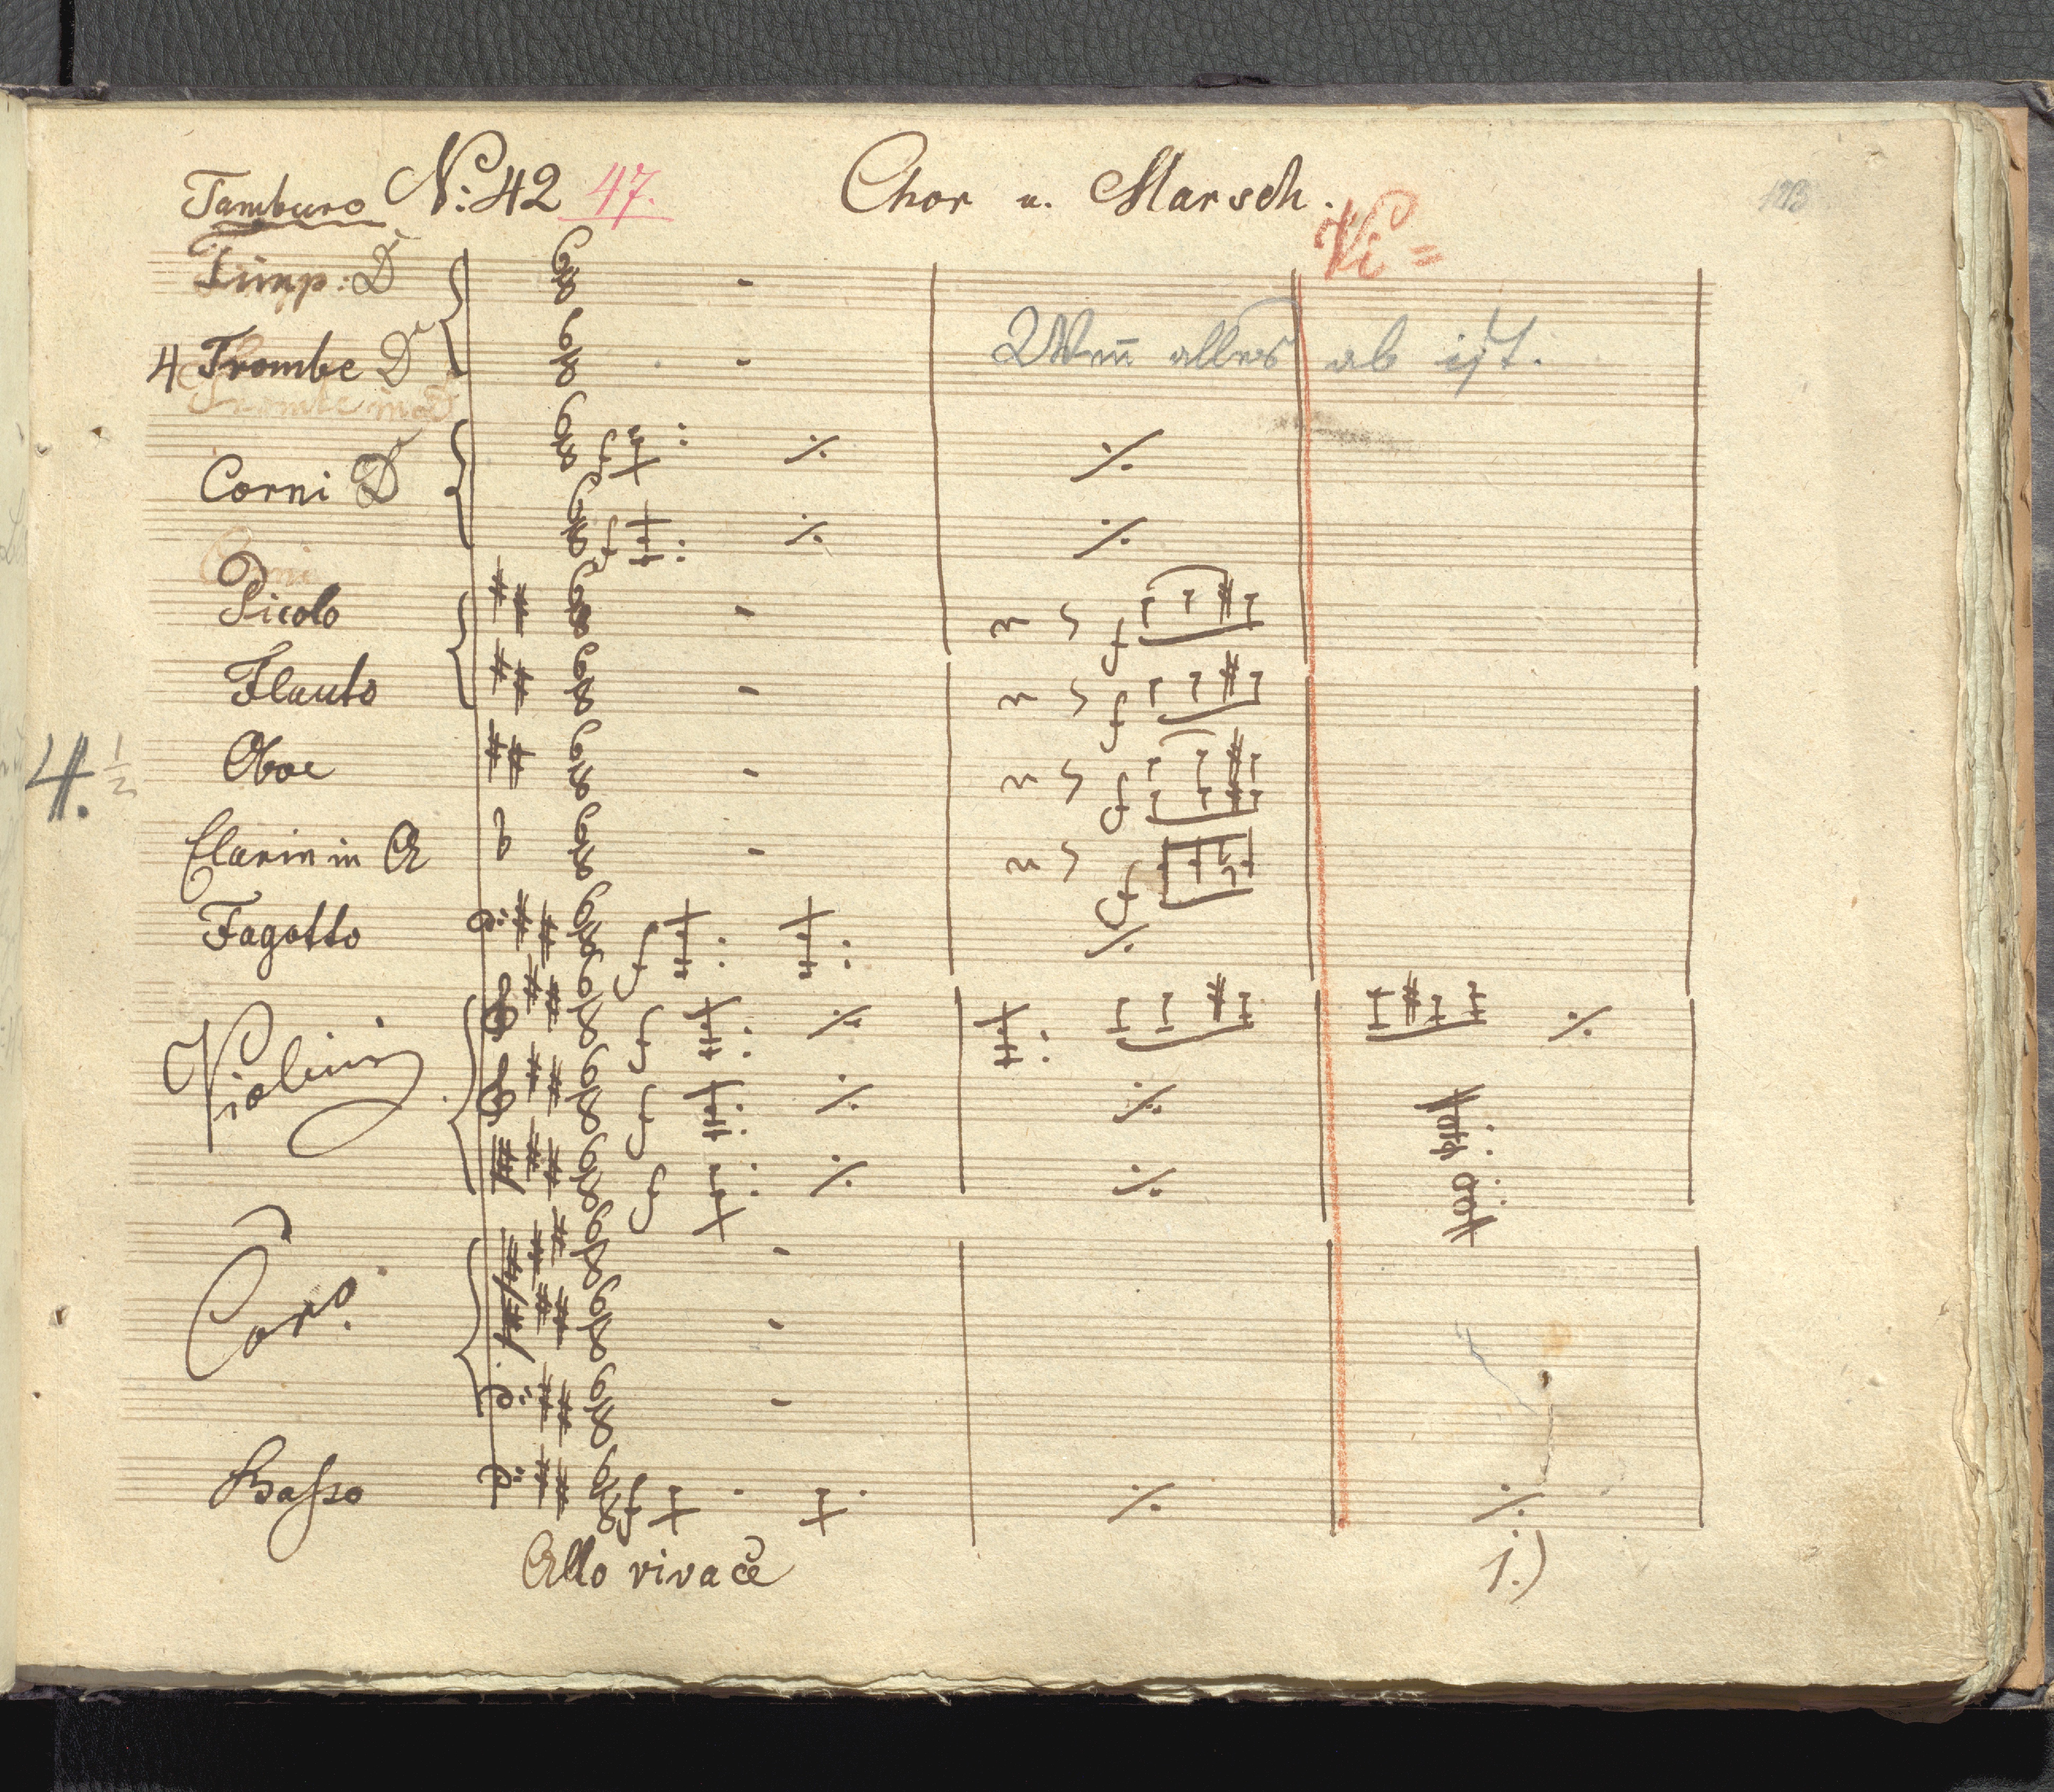 Tamburo No: 42 47. Chor u. Marsch.
Vi =
Timp: D
4 Trombe D
Wen̅ alles ab ist.
Corni D
Picolo
Flauto
Oboe
4. 1/2
Clarin in A
Fagotto
Violini
Coro.
Basso
Allo vivace
1.)